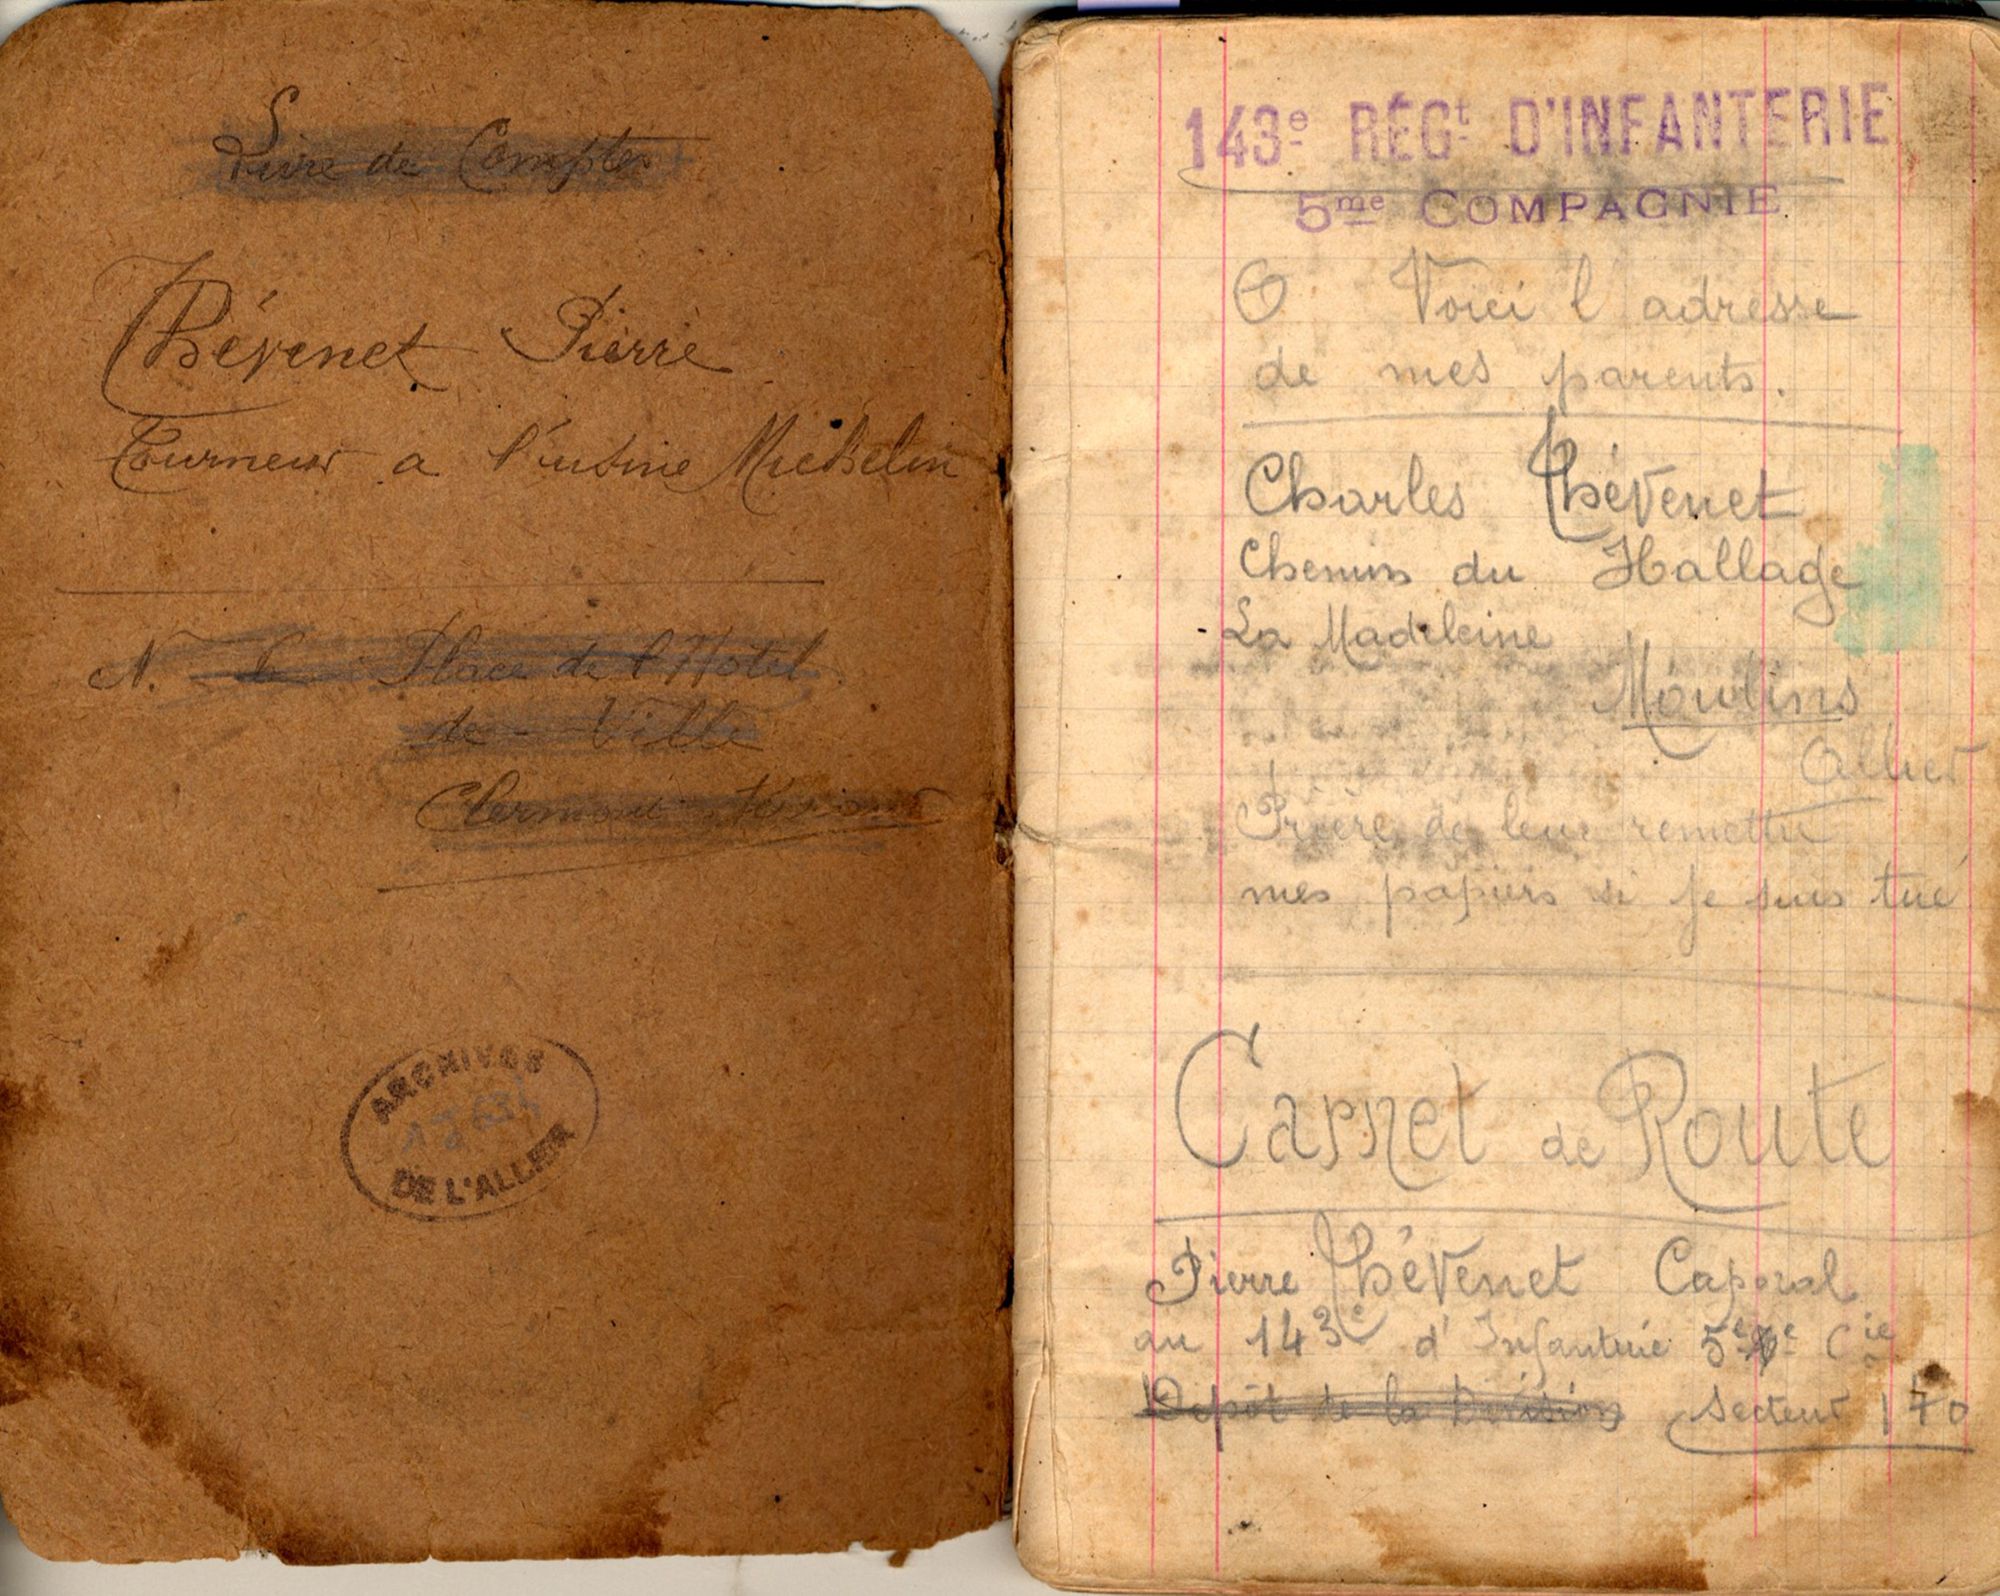 Livre de Comptes
Thévenet Pierre
Tourneur a l'usine Michelin
N. 6 Place de l'Hotel
de - Ville
Clermont-Ferrand
ARCHIVES
DE L'ALLIER
143e RÉGt D'INFANTERIE
5me COMPAGNIE
Voici l'adresse
de mes parents.
Charles Thévenet
Chemin du Hallage
La Madeleine
Moulins
Allier
Prière de leur remettre
mes papiers si je suis tué
Carnet de Route
Pierre Thévenet Caporal
au 143e d'Infanterie 5e Cie
Depôt de la Division Secteur 170